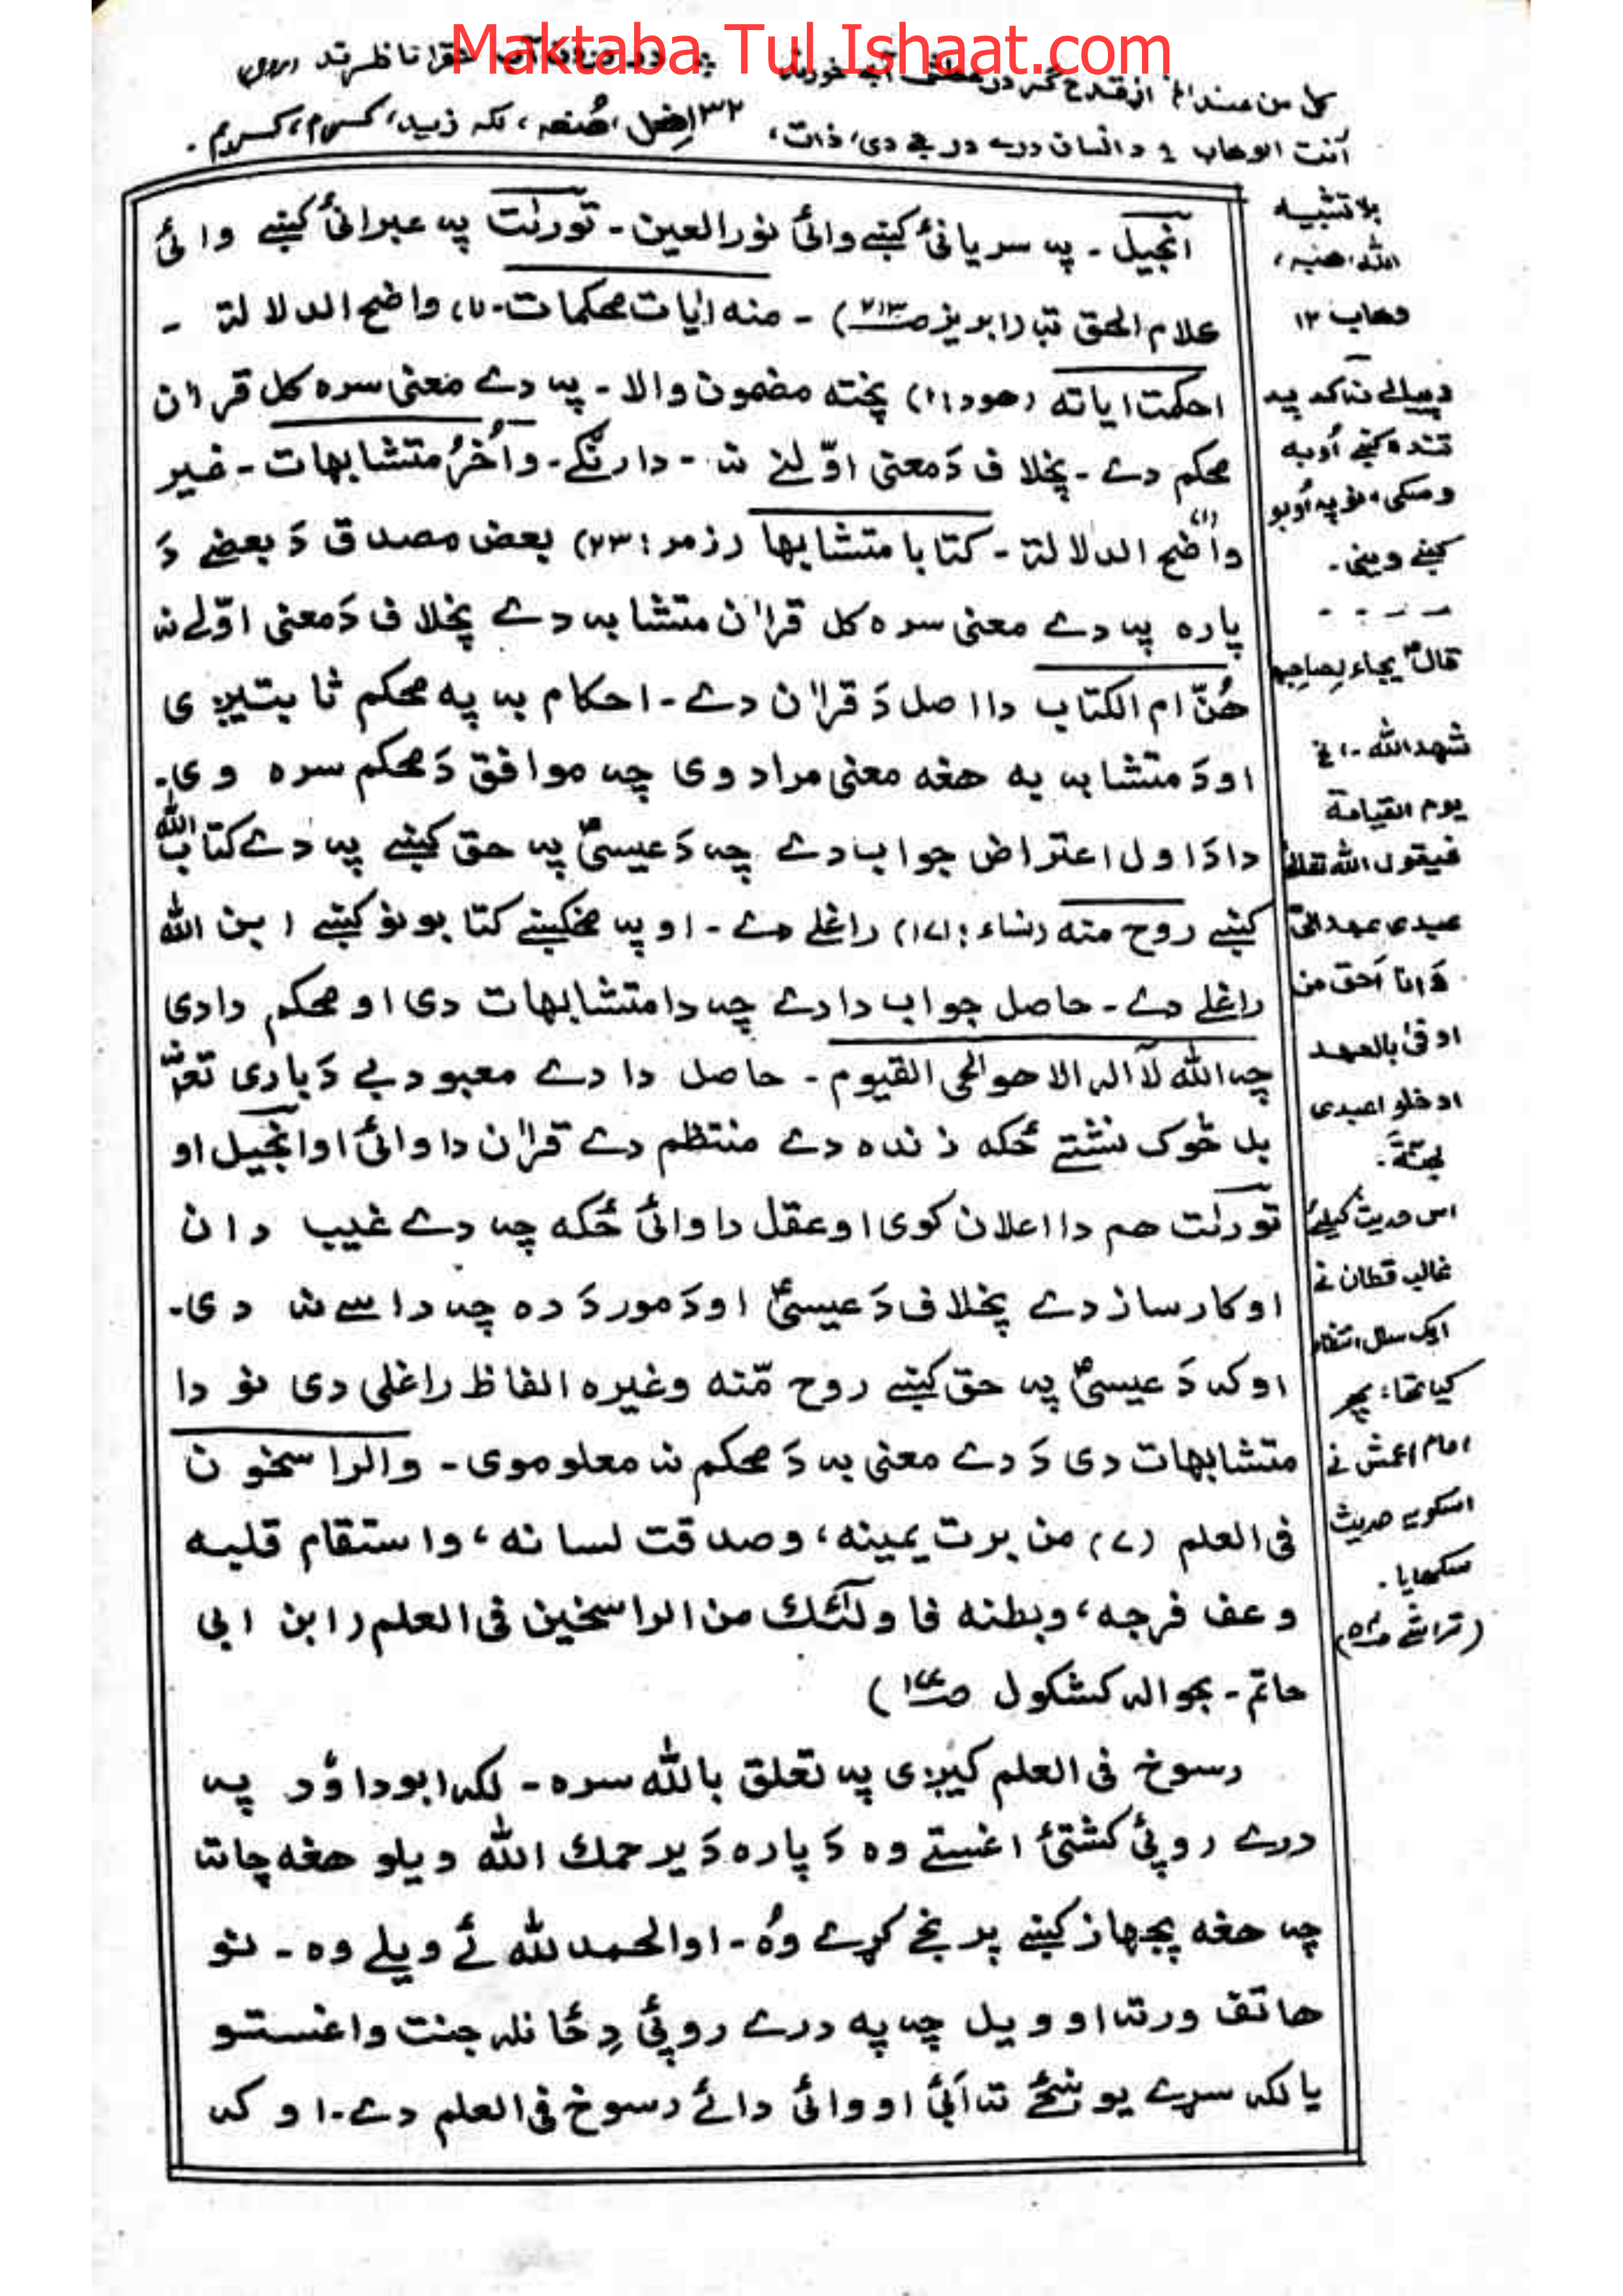 Maktaba Tul Ishaat.com
کل من عند الخ از قدح گر در عطش آبے خورند
آنت الوهاب ؛ د انسان درے درجے دی، ذات، ۳۲
انجیل ـ پہ سریانیٔ کښے وائیٔ نورالعین ـ تورٰت پہ عبرانیٔ کښے وائیٔ
علام الحق تبا (ابریز ص۲۱۳) ـ منه اٰیات محکمات ـ ۷، واضح الدلالة ـ
احکمت ایاته (هود: ۱) پخته مضمون والا ـ پہ دے معنی سره کل قراٰن
محکم دے ـ پخلاف دَ معنی اوّلنے نہ ـ دارنګے ـ وأُخَرُ متشابهات ـ غیر
واضح الدلالة ـ کتابا متشابها (زمر: ۲۳) بعض مصدق دَ بعضے دَ
پاره پہ دے معنی سره کل قراٰن متشابہ دے پخلاف دَ معنی اوّلے نہ
هُنّ ام الکتاب دا اصل دَ قراٰن دے ـ احکام بہ په محکم ثابتیږی
او دَ متشابہ به هغه معنی مراد وی چہ موافق دَ محکم سره وی ـ
دا دَ اول اعتراض جواب دے چہ دَ عیسیٰؑ پہ حق کښے پہ دے کتاب الله
کښے روح منه (نساء: ۱۷۱) راغلے دے ـ او پہ مخکښے کتابونو کښے ابن الله
راغلے دے ـ حاصل جواب دا دے چہ دا متشابهات دی او محکم دا دی
چہ الله لآ اله الا هو الحی القیوم ـ حاصل دا دے معبود بے دَ باری تعالیٰ
بل څوک نشتے ځکه ژنده دے منتظم دے قراٰن دا وائیٔ او انجیل او
تورٰت هم دا اعلان کوی او عقل دا وائیٔ ځکه چہ دے غیب دان
او کارساز دے پخلاف دَ عیسیٰؑ او دَ مور دَ ده چہ داسے نہ دی ـ
او کہ دَ عیسیٰؑ پہ حق کښے روح مّنه وغیره الفاظ راغلی دی نو دا
متشابهات دی دَ دے معنی بہ دَ محکم نہ معلوموی ـ والراسخون
فی العلم (۷) من برت یمینه، وصدقت لسانه، واستقام قلبه
وعف فرجه، وبطنه فاولٰئک من الراسخین فی العلم (ابن ابی
حاتم ـ بحوالہ کشکول)
رسوخ فی العلم کیږی پہ تعلق بالله سره ـ لکہ ابوداؤد پہ
درے روپیٔ کشتیٔ اغستے وه دَ پاره دَ یرحمک الله ویلو هغه چاتا
چہ هغه پجهاز کښے پرنجے کړے وُه ـ او الحمد لله ئے ویلے وه ـ نو
هاتف ورته او ویل چہ په درے روپیٔ دِ ځانلہ جنت واغستو
یا لکہ سړے یو شیٔ تہ اَبیٔ او وائیٔ دائے رسوخ فی العلم دے ـ او کہ
بلا تشبیہ
وهاب ۱۲
تنده کښے اُوبه
وسکی، نو په اُوبو
کښے وینی ـ
قالؐ یجاء لصاحبه
شهد الله ـ الخ
یوم القیامة
فیقول الله تعالیٰ
عبدی عهد الیّ
وَانا اَحق من
اوفیٰ بالعهد
ادخلوا عبدی
الجنّة ـ
اس حدیث کیلئے
غالب قطان نے
ایک سال انتظار
کیا تھا، پھر
امام اعمش نے
اسکویہ حدیث
سکھایا ـ